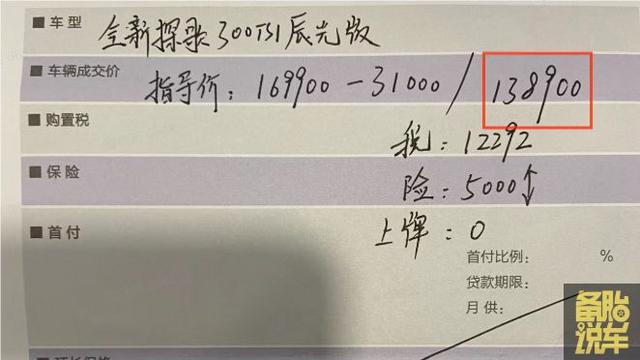 ■ 车 型 全新探歌300TSI辰光版
■ 车辆成交价 指导价：169900－31000 / 138900
■ 购置税 税：12292
■ 保 险 险：5000↑↓
■ 首 付 上牌：0
首付比例： %
贷款期限：
月 供：
备胎说车